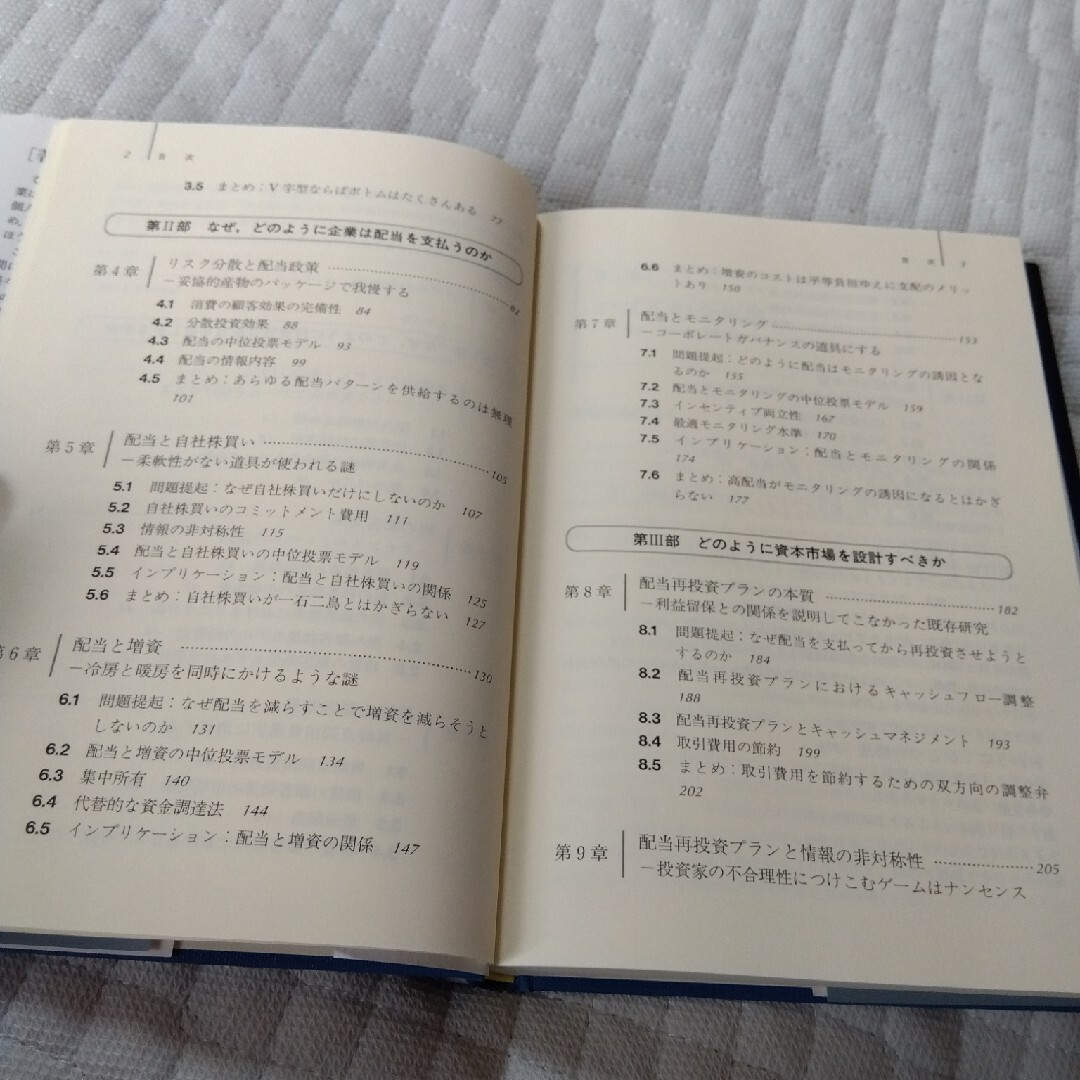 2 目 次
3.5 まとめ：V字型ならばボトムはたくさんある 77
第II部 なぜ，どのように企業は配当を支払うのか
第4章 リスク分散と配当政策 81
－妥協的産物のパッケージで我慢する
4.1 消費の顧客効果の完備性 84
4.2 分散投資効果 88
4.3 配当の中位投票モデル 93
4.4 配当の情報内容 99
4.5 まとめ：あらゆる配当パターンを供給するのは無理
101
第5章 配当と自社株買い 105
－柔軟性がない道具が使われる謎
5.1 問題提起：なぜ自社株買いだけにしないのか 107
5.2 自社株買いのコミットメント費用 111
5.3 情報の非対称性 115
5.4 配当と自社株買いの中位投票モデル 119
5.5 インプリケーション：配当と自社株買いの関係 125
5.6 まとめ：自社株買いが一石二鳥とはかぎらない 127
第6章 配当と増資 130
－冷房と暖房を同時にかけるような謎
6.1 問題提起：なぜ配当を減らすことで増資を減らそうと
しないのか 131
6.2 配当と増資の中位投票モデル 134
6.3 集中所有 140
6.4 代替的な資金調達法 144
6.5 インプリケーション：配当と増資の関係 147
目 次 3
6.6 まとめ：増資のコストは平等負担ゆえに支配のメリッ
トあり 150
第7章 配当とモニタリング 153
－コーポレートガバナンスの道具にする
7.1 問題提起：どのように配当はモニタリングの誘因とな
るのか 155
7.2 配当とモニタリングの中位投票モデル 159
7.3 インセンティブ両立性 167
7.4 最適モニタリング水準 170
7.5 インプリケーション：配当とモニタリングの関係
174
7.6 まとめ：高配当がモニタリングの誘因になるとはかぎ
らない 177
第III部 どのように資本市場を設計すべきか
第8章 配当再投資プランの本質 182
－利益留保との関係を説明してこなかった既存研究
8.1 問題提起：なぜ配当を支払ってから再投資させようと
するのか 184
8.2 配当再投資プランにおけるキャッシュフロー調整
188
8.3 配当再投資プランとキャッシュマネジメント 193
8.4 取引費用の節約 199
8.5 まとめ：取引費用を節約するための双方向の調整弁
202
第9章 配当再投資プランと情報の非対称性 205
－投資家の不合理性につけこむゲームはナンセンス